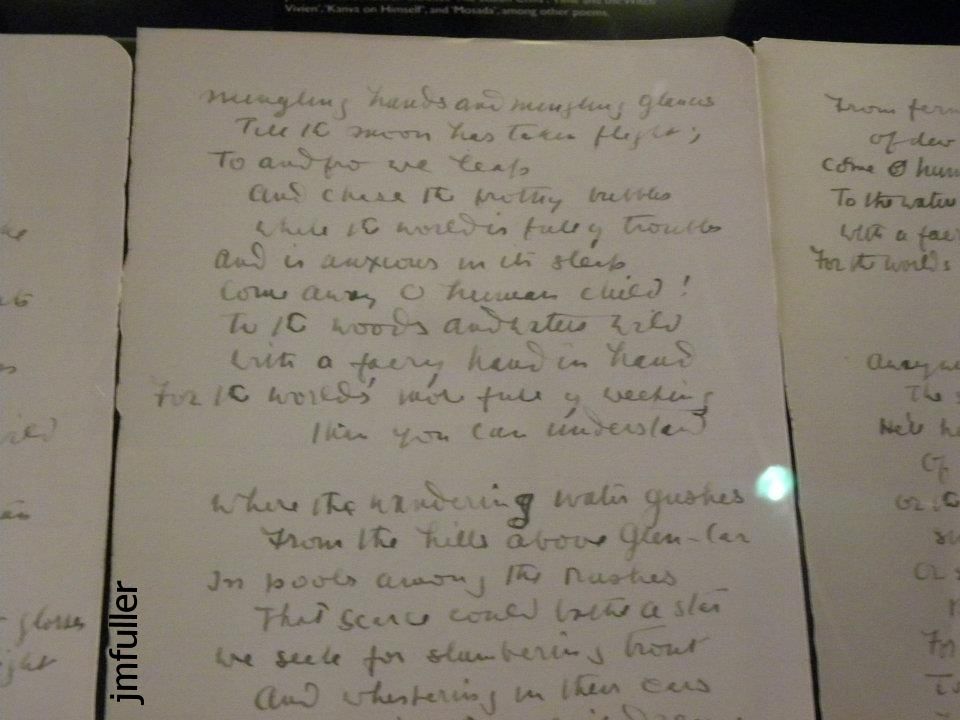 Vivien', 'Kanva on Himself', and 'Mosada', among other poems.
mingling hands and mingling glances
Till the moon has taken flight;
To and fro we leap
And chase the frothy bubbles
while the world is full of troubles
And is anxious in its sleep
Come away O human child!
To the woods and waters wild
with a faery hand in hand
For the world's more full of weeping
than you can understand
where the wandering water gushes
From the hills above Glen-Car
In pools among the rushes
That scarce could bathe a star
we seek for slumbering trout
And whispering in their ears
From fern
of dew
Come O hum
To the water
with a faer
For the worlds
Away
The
He'll
Of
or
For
glosses
ight
jmfuller